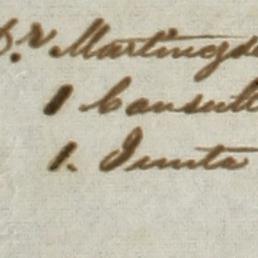 Dr Martingda
1 Consult
1. Junta